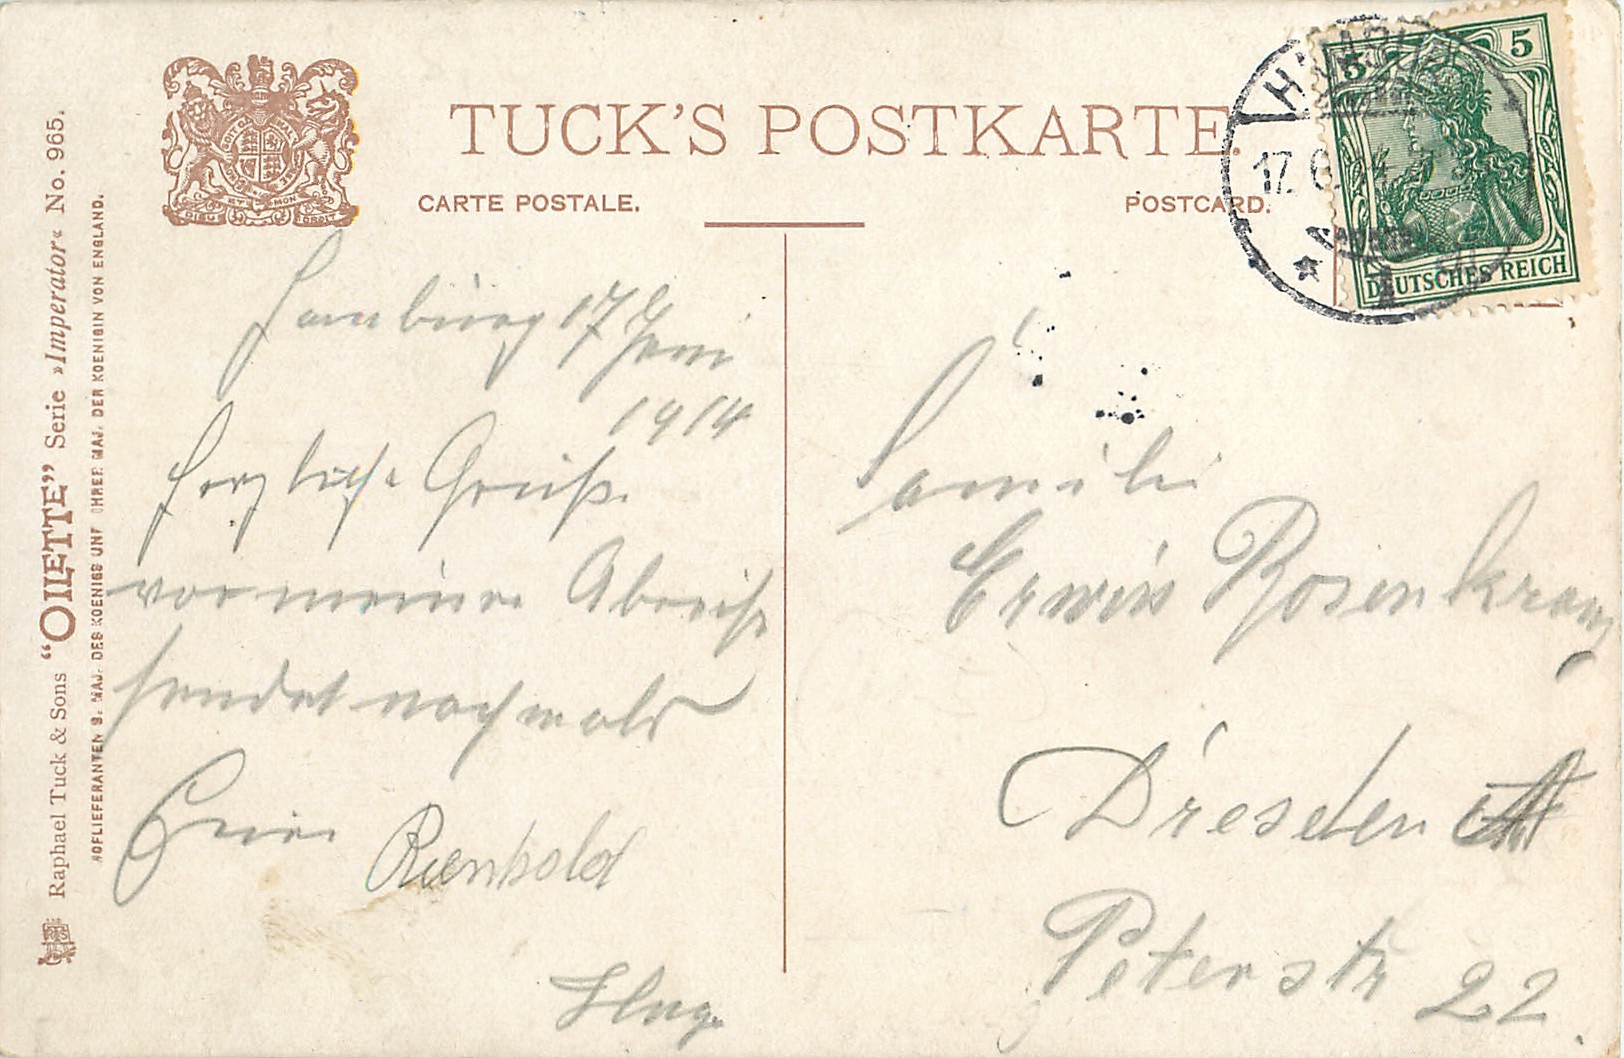 TUCK'S POSTKARTE.
CARTE POSTALE.
POSTCARD.
Raphael Tuck & Sons “OILETTE” Serie »Imperator« No. 965.
HOFLIEFERANTEN S. MAJ. DES KOENIGS UND IHRER MAJ. DER KOENIGIN VON ENGLAND.
5 5
DEUTSCHES REICH
17. 6. 14
Hamburg 17 Juni
1914
Herzliche Grüße
vor meiner Abreise
sendet nochmals
Euer Reinhold
Familie
Erwin Rosenkranz
Dresden A
Peterstr 22.